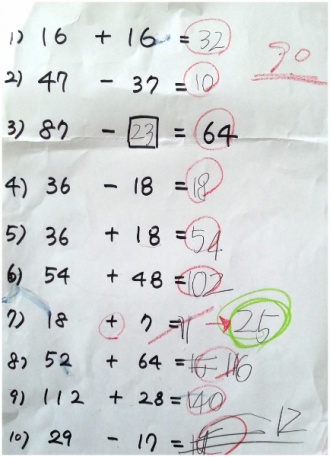 1) 16 + 16 = 32
90
2) 47 - 37 = 10
3) 87 - 23 = 64
4) 36 - 18 = 18
5) 36 + 18 = 54
6) 54 + 48 = 102
7) 18 + 7 = 11 25
8) 52 + 64 = 116
9) 112 + 28 = 140
10) 29 - 17 = 12